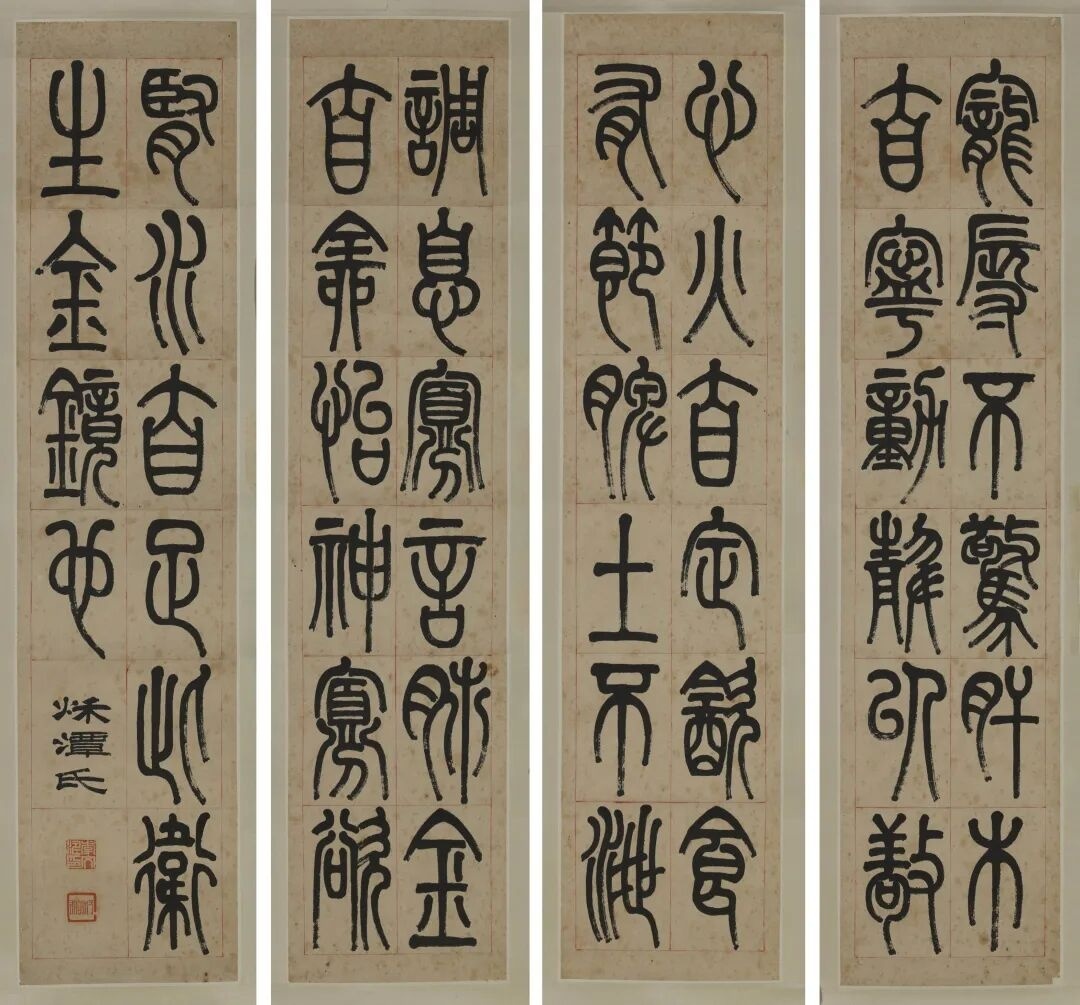 寵辱不驚肝木
自寧動靜以敬
心火自定飲食
有節脾土不泄
調息寡言肺金
自全怡神寡欲
腎水自足此衛
生金鏡也
秌潭氏